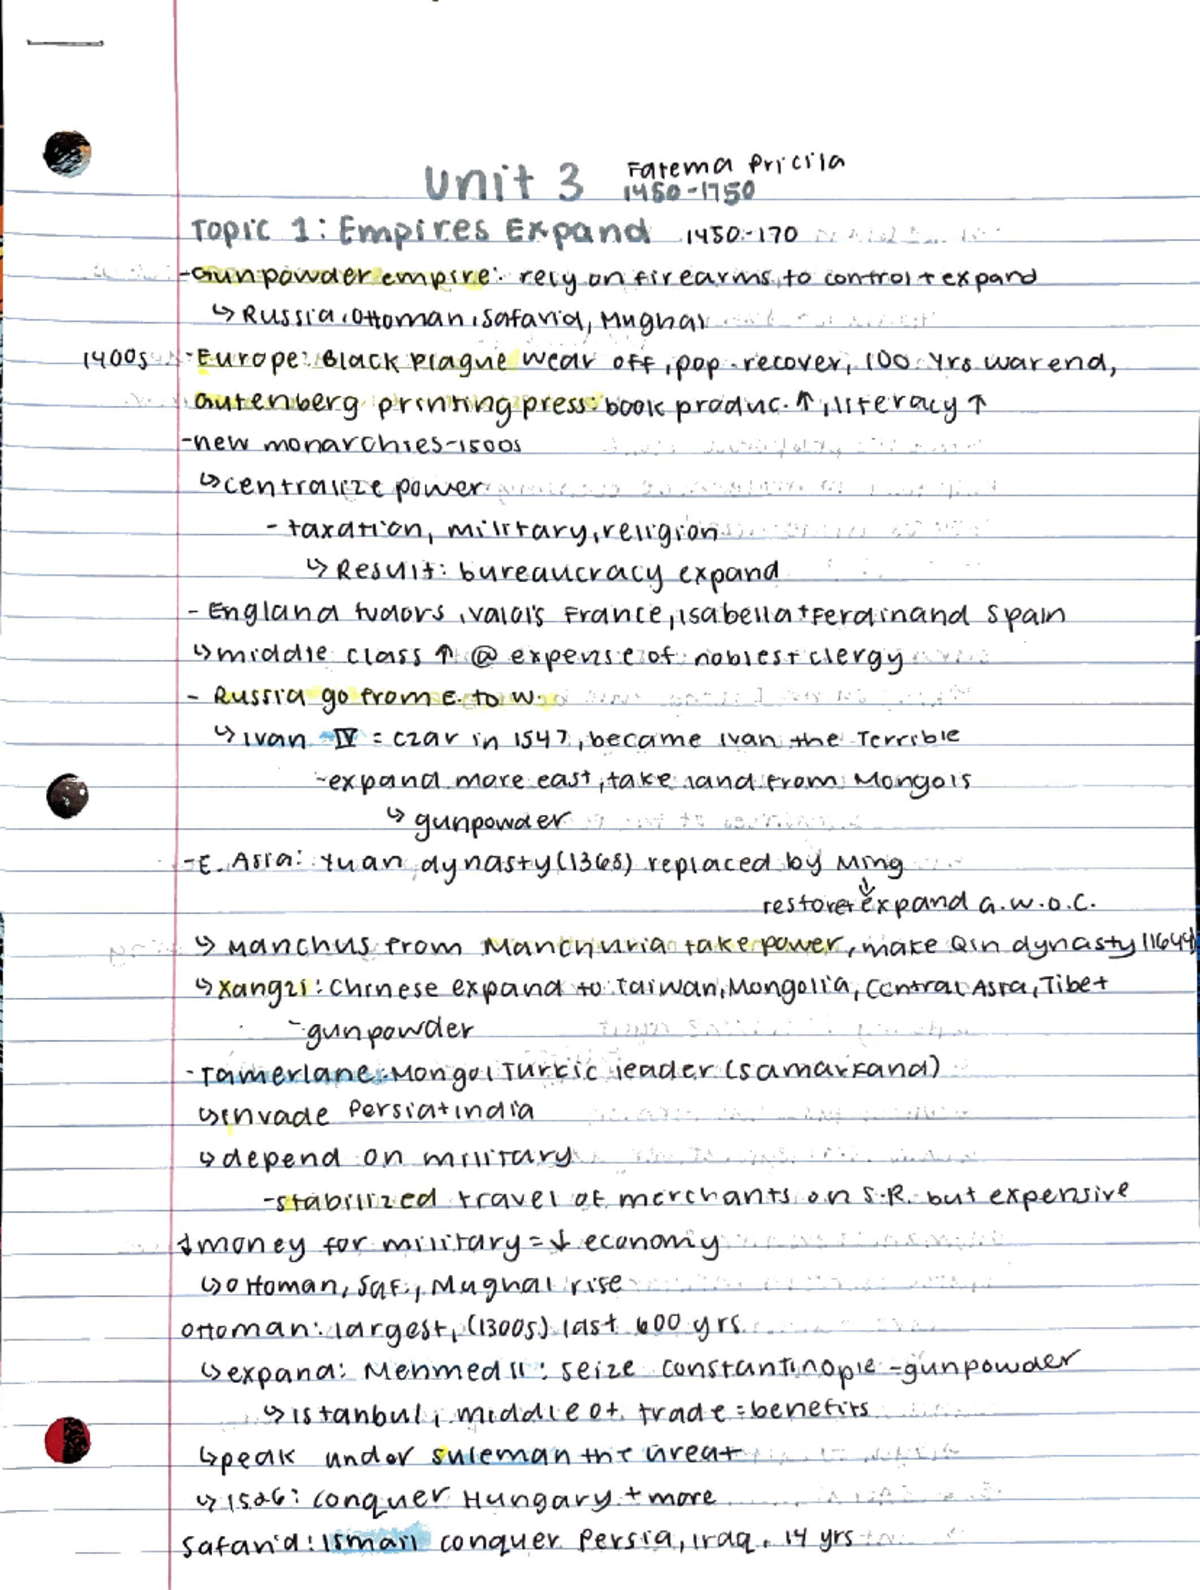 Fatema Pricila
Unit 3 1450-1750
Topic 1: Empires Expand 1450-170
-Gunpowder empire: rely on firearms to control + expand
↳ Russia, Ottoman, Safavid, Mughal
1400s -Europe: Black Plague wear off, pop. recover, 100 yrs war end,
Gutenberg printing press: book produc. ↑, literacy ↑
-new monarchies-1500s
↳ centralize power
- taxation, military, religion
↳ Result: bureaucracy expand
- England tudors, Valois France, Isabella + Ferdinand Spain
↳ middle class ↑ @ expense of nobles + clergy
- Russia go from E. to W.
↳ Ivan IV = czar in 1547, became Ivan the Terrible
-expand more east, take land from Mongols
↳ gunpowder
-E. Asia: Yuan dynasty (1368) replaced by Ming
↓
restore + expand a.w.o.c.
↳ Manchus from Manchuria take power, make Qin dynasty (1644)
↳ Xangzi: Chinese expand to Taiwan, Mongolia, Central Asia, Tibet
-gunpowder
-Tamerlane: Mongol Turkic leader (Samarkand)
↳ invade Persia + India
↳ depend on military
-stabilized travel of merchants on S.R. but expensive
↓ money for military = ↓ economy
↳ Ottoman, Saf., Mughal rise
Ottoman: largest, (1300s) last 600 yrs
↳ expand: Mehmed II: seize Constantinople -gunpowder
↳ Istanbul, middle of trade = benefits
↳ peak under Suleman the Great
↳ 1526: conquer Hungary + more
Safavid: Ismail conquer Persia, Iraq. 14 yrs